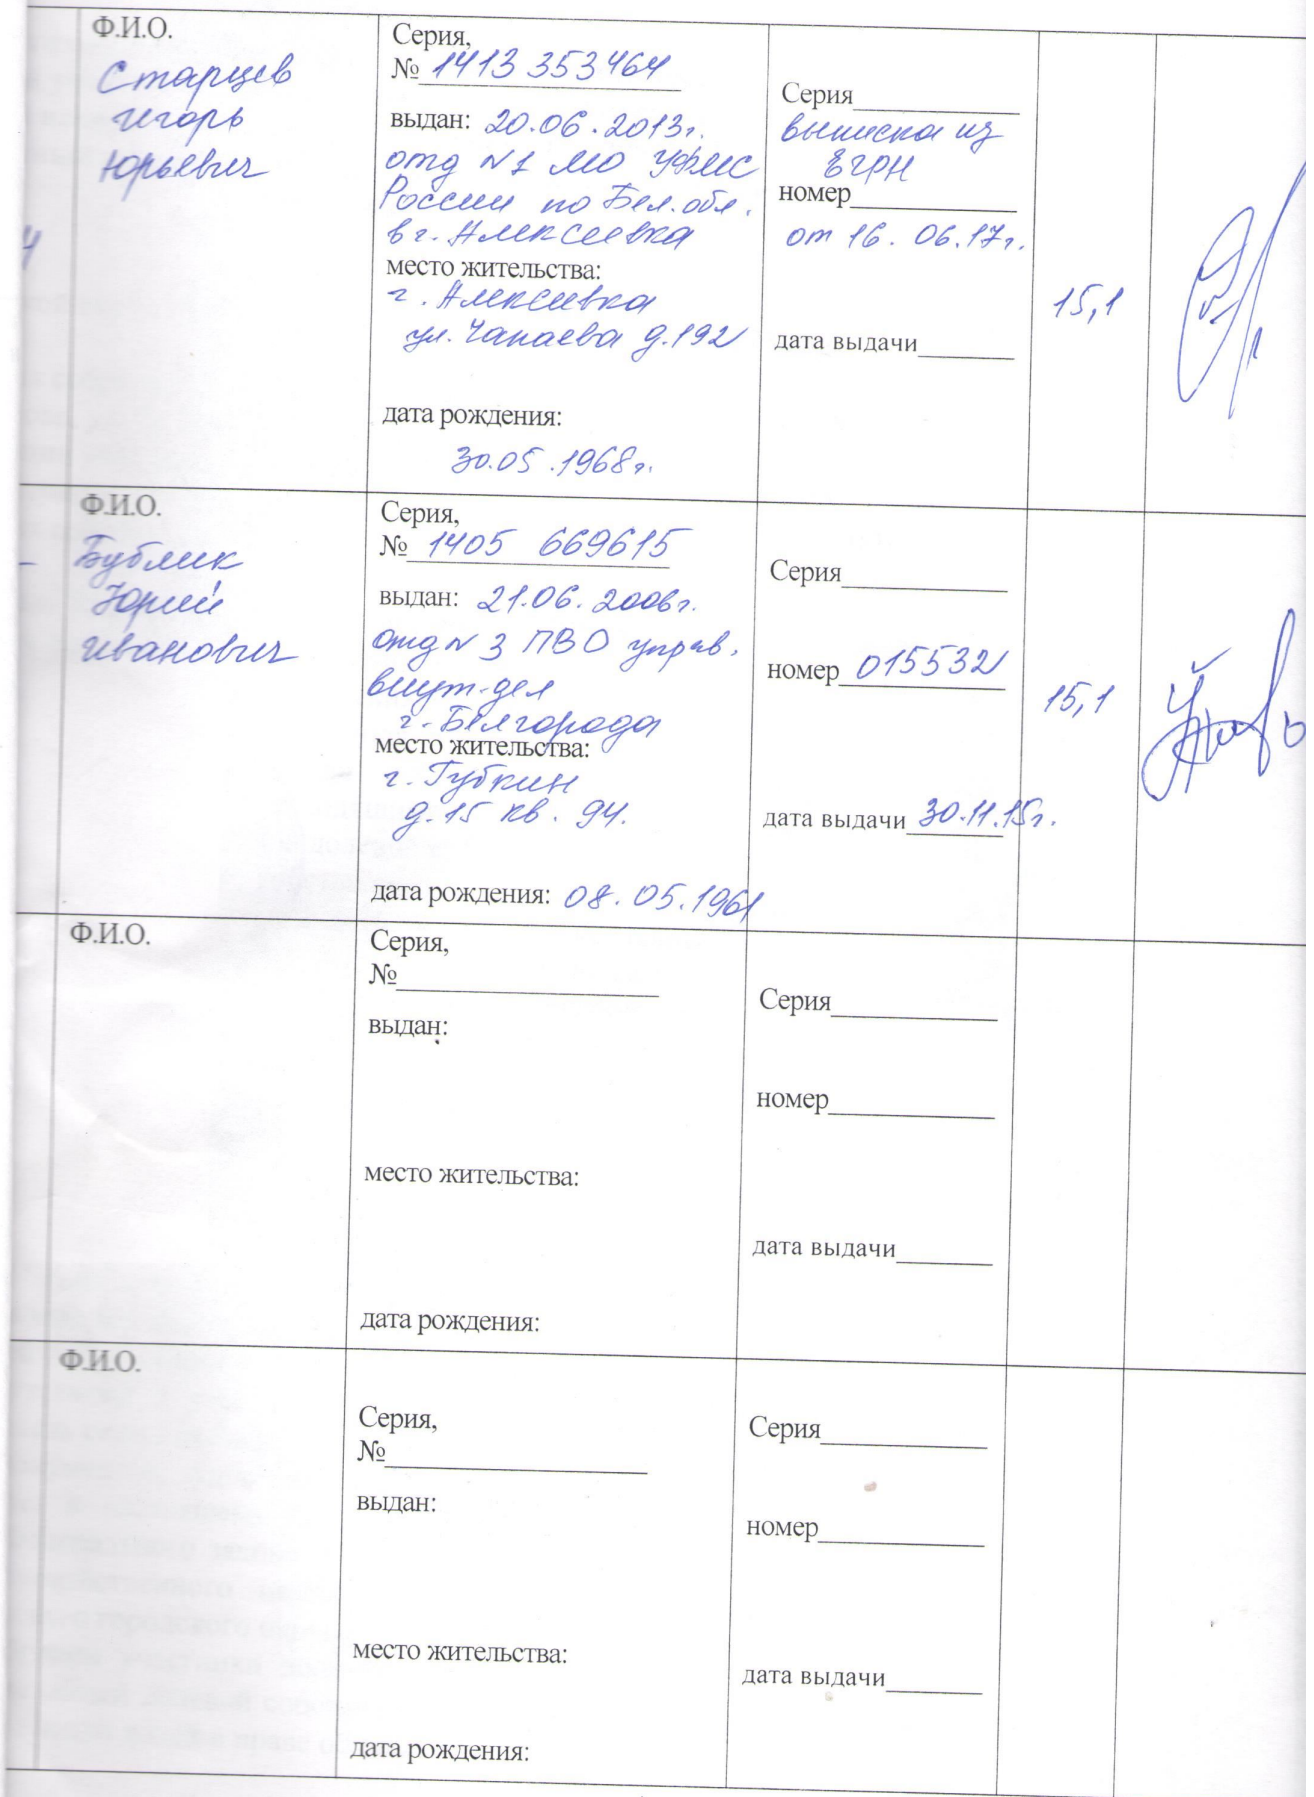 Ф.И.О.
Старцев
Игорь
Юрьевич
Серия,
№ 1413 353464
выдан: 20.06.2013г.
отд №1 МО УФМС
России по Бел. обл.
в г. Алексеевка
место жительства:
г. Алексеевка
ул. Чапаева д.192
дата рождения:
30.05.1968г.
Серия
выписка из
ЕГРН
номер
от 16.06.17г.
дата выдачи
15,1
Ф.И.О.
Бублик
Юрий
Иванович
Серия,
№ 1405 669615
выдан: 21.06.2006г.
отд № 3 ПВО управ.
внут. дел
г. Белгорода
место жительства:
г. Губкин
д.15 кв. 94.
дата рождения: 08.05.1961
Серия
номер 015532
дата выдачи 30.11.15г.
15,1
Ф.И.О.
Серия,
№
выдан:
место жительства:
дата рождения:
Серия
номер
дата выдачи
Ф.И.О.
Серия,
№
выдан:
место жительства:
дата рождения:
Серия
номер
дата выдачи